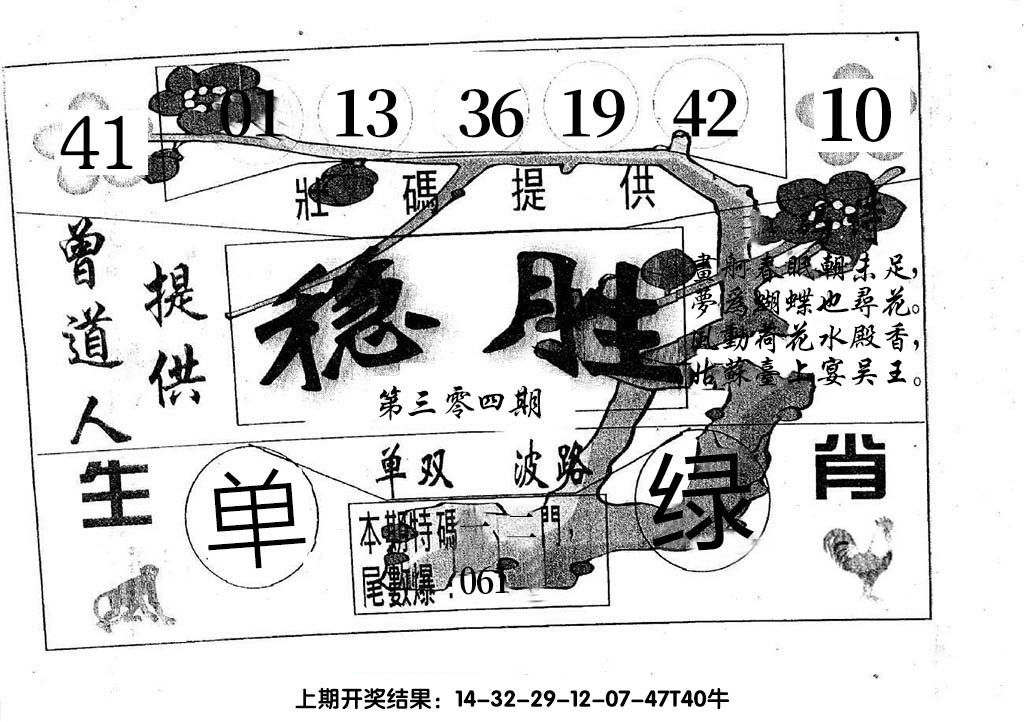 41 01 13 36 19 42 10
壯碼提供
曾道人
提供
稳胜
第三零四期
畫舸春眠朝未足，
夢為蝴蝶也尋花。
風動荷花水殿香，
姑蘇臺上宴吳王。
单双 波路
生肖
单
绿
本期特碼一、二門，
尾數爆：061
上期开奖结果：14-32-29-12-07-47T40牛